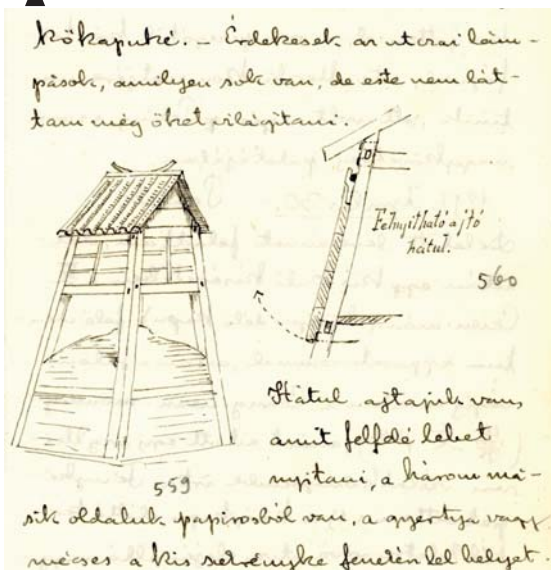 kőkapuké. – Érdekesek az utczai lám-
pások, amilyen sok van, de este nem lát-
tam még őket világítani.
Felnyitható ajtó
hátul.
560
559
Hátul ajtajuk van,
amit felfelé lehet
nyitani, a három má-
sik oldaluk papirosból van, a gyertya vagy
mécses a kis szekrényke fenekén lel helyet.